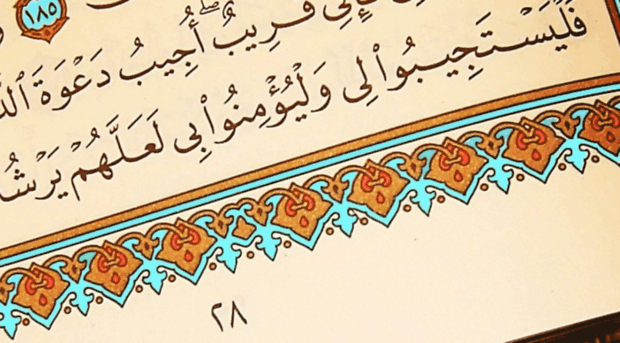 ١٨٥
فَإِنِّى قَرِيبٌ ۖ أُجِيبُ دَعْوَةَ
فَلْيَسْتَجِيبُوا۟ لِى وَلْيُؤْمِنُوا۟ بِى لَعَلَّهُمْ يَرْشُ
٢٨